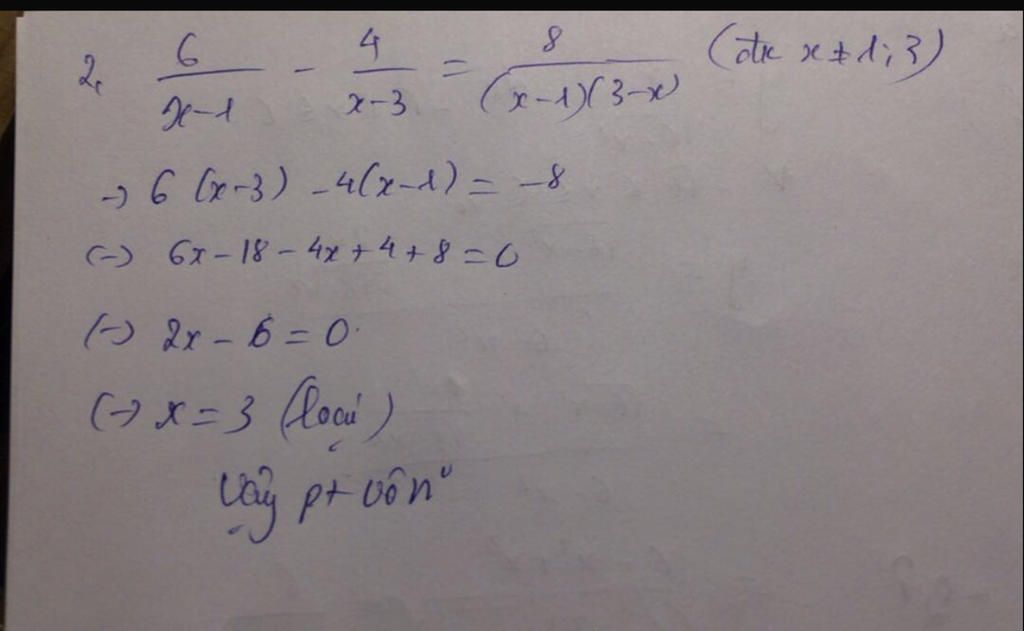 2, 6/(x-1) - 4/(x-3) = 8/((x-1)(3-x)) (đk x ≠ 1; 3)
-> 6 (x-3) - 4(x-1) = -8
(-> 6x - 18 - 4x + 4 + 8 = 0
(-> 2x - 6 = 0
(-> x = 3 (loại)
Vậy pt vô n⁰